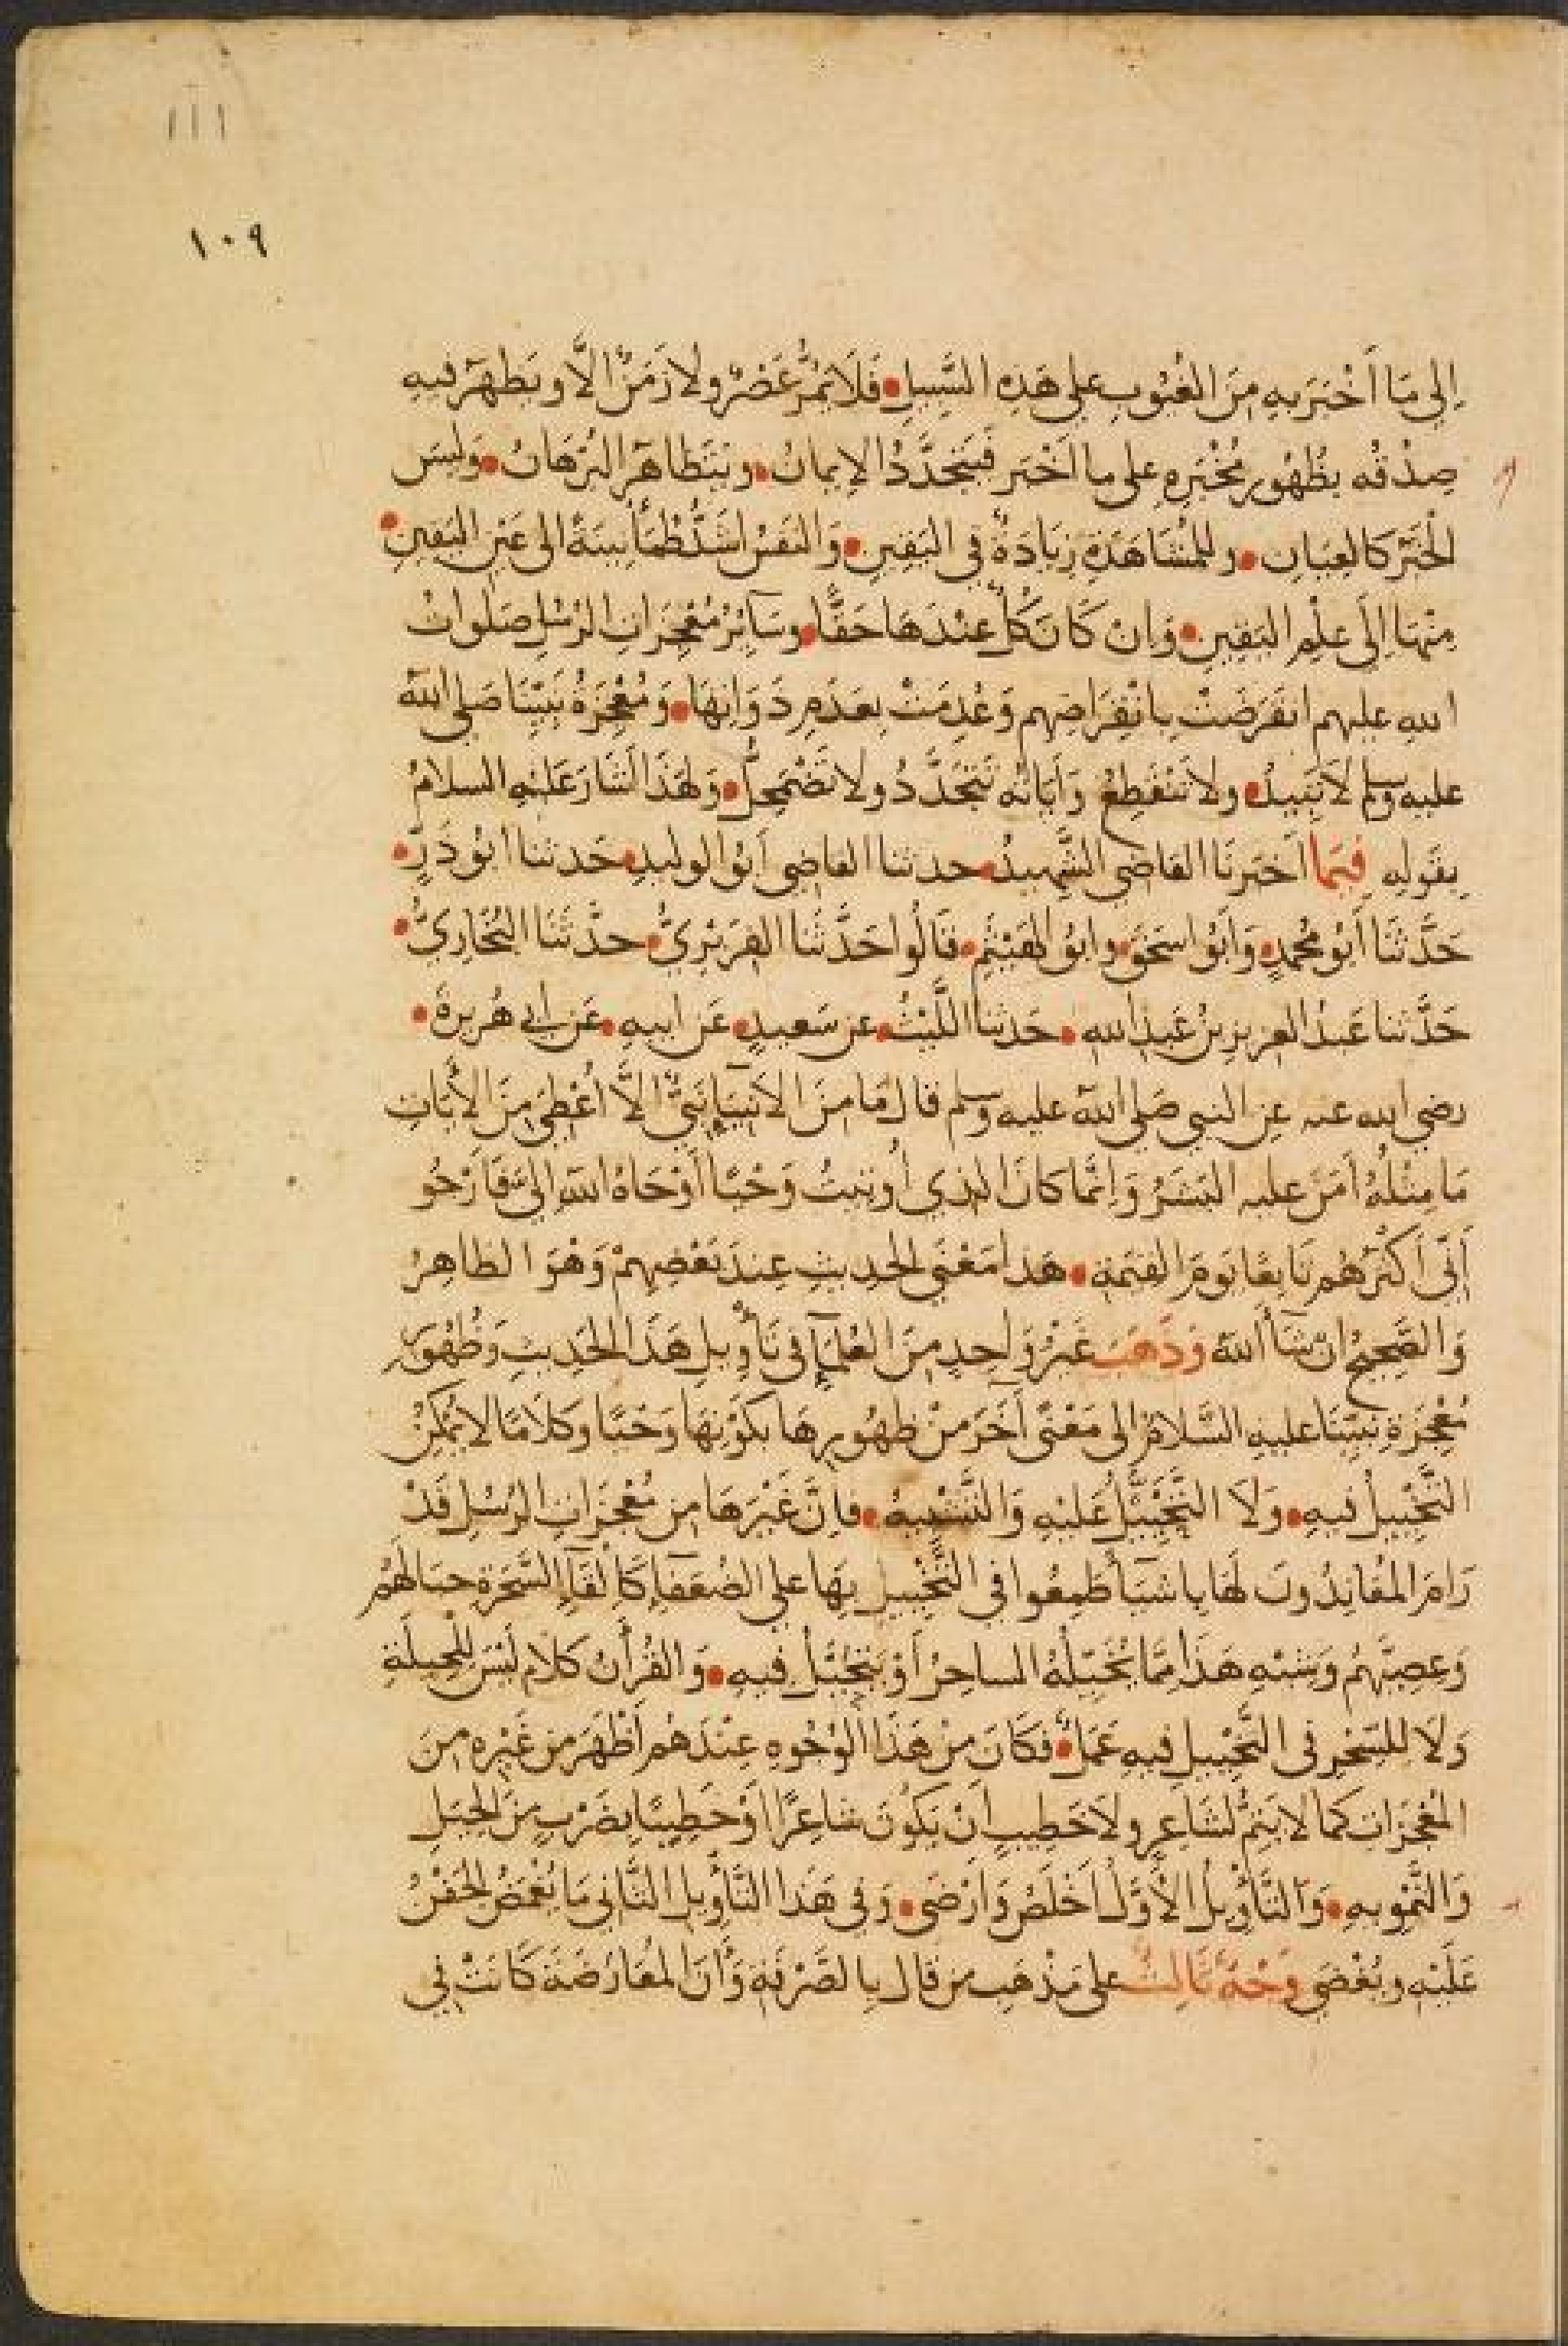 ١١١
١٠٩
إِلَى مَا أَخْبَرَ بِهِ مِنَ الغُيُوبِ عَلى هَذِهِ السَّبِيلِ • فَلَا يَمُرُّ عَصْرٌ ولا زَمَنٌ الَّا ويَظْهَرُ فيهِ
صِدْقُه بِظُهُورِ مُخْبَرِهِ على ما اَخْبَر فَيَتَجَدَّدُ الإيمانُ • ويَتَظاهَرُ البُرْهَانُ • وَلَيسَ
الْخَبَرُ كَالعِيَانِ • وللمُشَاهَدَةِ زِيَادَةٌ في اليَقِينِ • وَالنَفْسُ اَشَدُّ طُمَأْنِينَةً الى عَيْنِ اليَقِينِ •
مِنْهَا اِلَى عِلْمِ اليَقِينِ • وَاِنْ كَانَ كُلٌّ عِنْدَهَا حَقًّا • وسَآئِرُ مُعْجِزَاتِ الرُسُلِ صَلَواتُ
اللهِ عليهم انْقَرَضَتْ بِانْقِرَاضِهِم وَعُدِمَتْ بِعَدَمِ ذَوَاتِهَا • وَمُعْجِزَةُ نَبِيِّنَا صَلى اللهُ
عليه وسلم لَا تَبِيدُ • ولا تَنْقَطِعُ وَآيَاتُه تَتَجَدَّدُ ولا تَضْمَحِلُّ • وَلِهَذَا اَشَارَ عَلَيْهِ السلامُ
بِقَولِهِ فِيمَا اَخْبَرنَا القاضي الشَّهِيدُ • حدثنا القاضي أَبُو الوليدِ • حَدثنا ابُو ذَرٍّ •
حَدَّثَنَا أَبُو مُحمدٍ • وَاَبُو اسحَقَ • وابُو الهَيْثَمِ • قَالُوا حَدَّثَنا الفِرَبْرِيُّ • حدَّثَنَا البُخَارِيُّ •
حَدَّثنا عَبْدُ العزيزِ بنُ عَبْدِ اللهِ • حَدثنا اللَّيْثُ • عن سَعِيدٍ • عَن ابيهِ • عَن ابي هُريرةَ •
رضي الله عنه عن النبي صَلى اللهُ عليه وسلم قال مَا مِنَ الاَنْبِيَآءِ نَبِيٌّ الَّا اُعْطِيَ مِنَ الآيَاتِ
مَا مِثْلُهُ اَمَنَ عليه البَشَرُ وَاِنَّمَا كانَ الذي أُوتِيتُ وَحْيًا أَوْحَاهُ اللهُ الىَّ فَأَرْجُو
أَنِّي أَكْثَرُهُم تَابِعًا يَومَ القِيمَةِ • هَذا مَعْنَى الحديثِ عِندَ بَعْضِهِمْ وَهْوَ الظاهِرُ
وَالصَّحِيحُ اِنْ شَآءَ اللهُ وَذَهَبَ غَيْرُ وَاحِدٍ مِنَ العُلَمَآءِ في تَأْوِيلِ هَذَا الحَدِيثِ وَظُهُورِ
مُعْجِزَةِ نَبِيِّنَا عليهِ السَّلامُ الى مَعْنًى آخَرَ مِنْ ظهُورِهَا بكَوْنِهَا وَحْيًا وكلَامًا لا يُمْكِنُ
التَّخْيِيلُ فيهِ • وَلَا التَّحَيُّلُ عَلَيْهِ وَالتَّشْبِيهُ • فإنَّ غَيْرَهَا مِن مُعْجِزَاتِ الرُسُلِ قَدْ
رَامَ المُعَانِدُونَ لَهَا بِاشْيَآءَ طَمِعُوا في التَّخْيِيلِ بِهَا على الضُعَفَآءِ كَاِلْقَآءِ السَّحَرَةِ حبَالَهُمْ
وَعِصِيَّهُمْ وَشِبْهِ هَذَا مِمَّا يُخَيِّلُهُ الساحِرُ أَوْ يَتَحَيَّلُ فيهِ • وَالقُرْأنُ كلَامٌ لَيْسَ لِلْحِيلَةِ
وَلَا لِلسِّحْرِ في التَّخْيِيلِ فيهِ عَمَلٌ • فكَانَ مِنْ هَذَا الوُجُوهِ عِنْدَهُم أَظْهَرَ مِن غَيْرِهِ مِنَ
المُعْجِزَاتِ كَمَا لا يَتِمُّ لشَاعِرٍ ولا خَطِيبٍ اَنْ يَكُونَ شاعِرًا اَوْ خَطِيبًا بِضَرْبٍ مِنَ الحِيَلِ
وَالتَّمْويهِ • وَالتَّأْوِيلُ الأَوَّلُ اَخْلَصُ وَارْضَى • وَفي هَذَا التَّأْوِيلِ الثَّانِي مَا يُغَمَّضُ الجَفْنُ
عَلَيْهِ ويُغْضَى وَجْهٌ ثَالِثٌ على مَذْهَبِ مَن قَال بِالصَّرْفَةِ وَأَنَّ المُعَارَضَةَ كَانَتْ في